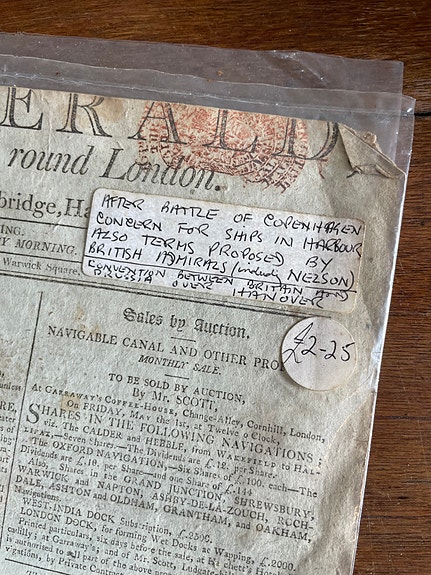 HERALD,
round London.
bridge, Ha
ING.
Y MORNING.
Warwick Square,
AFTER BATTLE OF COPENHAGEN
CONCERN FOR SHIPS IN HARBOUR
ALSO TERMS PROPOSED BY
BRITISH ADMIRALS (including NELSON)
CONVENTION BETWEEN BRITAIN AND
RUSSIA OVER HANOVER
£2-25
Sales by Auction.
NAVIGABLE CANAL AND OTHER PRO
MONTHLY SALE.
TO BE SOLD BY AUCTION,
By Mr. SCOTT,
At GARRAWAY'S COFFEE-HOUSE, Change-Alley, Cornhill, London,
On FRIDAY, MAY the 1st, at Twelve o'Clock,
SHARES IN THE FOLLOWING NAVIGATIONS;
viz. The CALDER and HEBBLE, from WAKEFIELD to HAL-
IFAX,—Seven Shares.—The Dividends are £.12. per Share.
The OXFORD NAVIGATION,—Six Shares of £.100. each—The
Dividends are £.10. per Share—and one Share of £.144
Also, Shares in the GRAND JUNCTION, SHREWSBURY,
WARWICK and NAPTON, ASHBY-DE-LA-ZOUCH, ROCH-
DALE, ASHTON and OLDHAM, GRANTHAM, and OAKHAM,
Navigations.
WEST-INDIA DOCK Subscription, £.2500.
LONDON DOCK, for forming Wet Docks at Wapping, £.2000.
Printed particulars, six days before the sale, at Hatchett's Hotel,
cadilly; at Garraway's; and of Mr. Scott, Ludgate-
is authorised to sell part of the above pro
vigations, by Private Contract